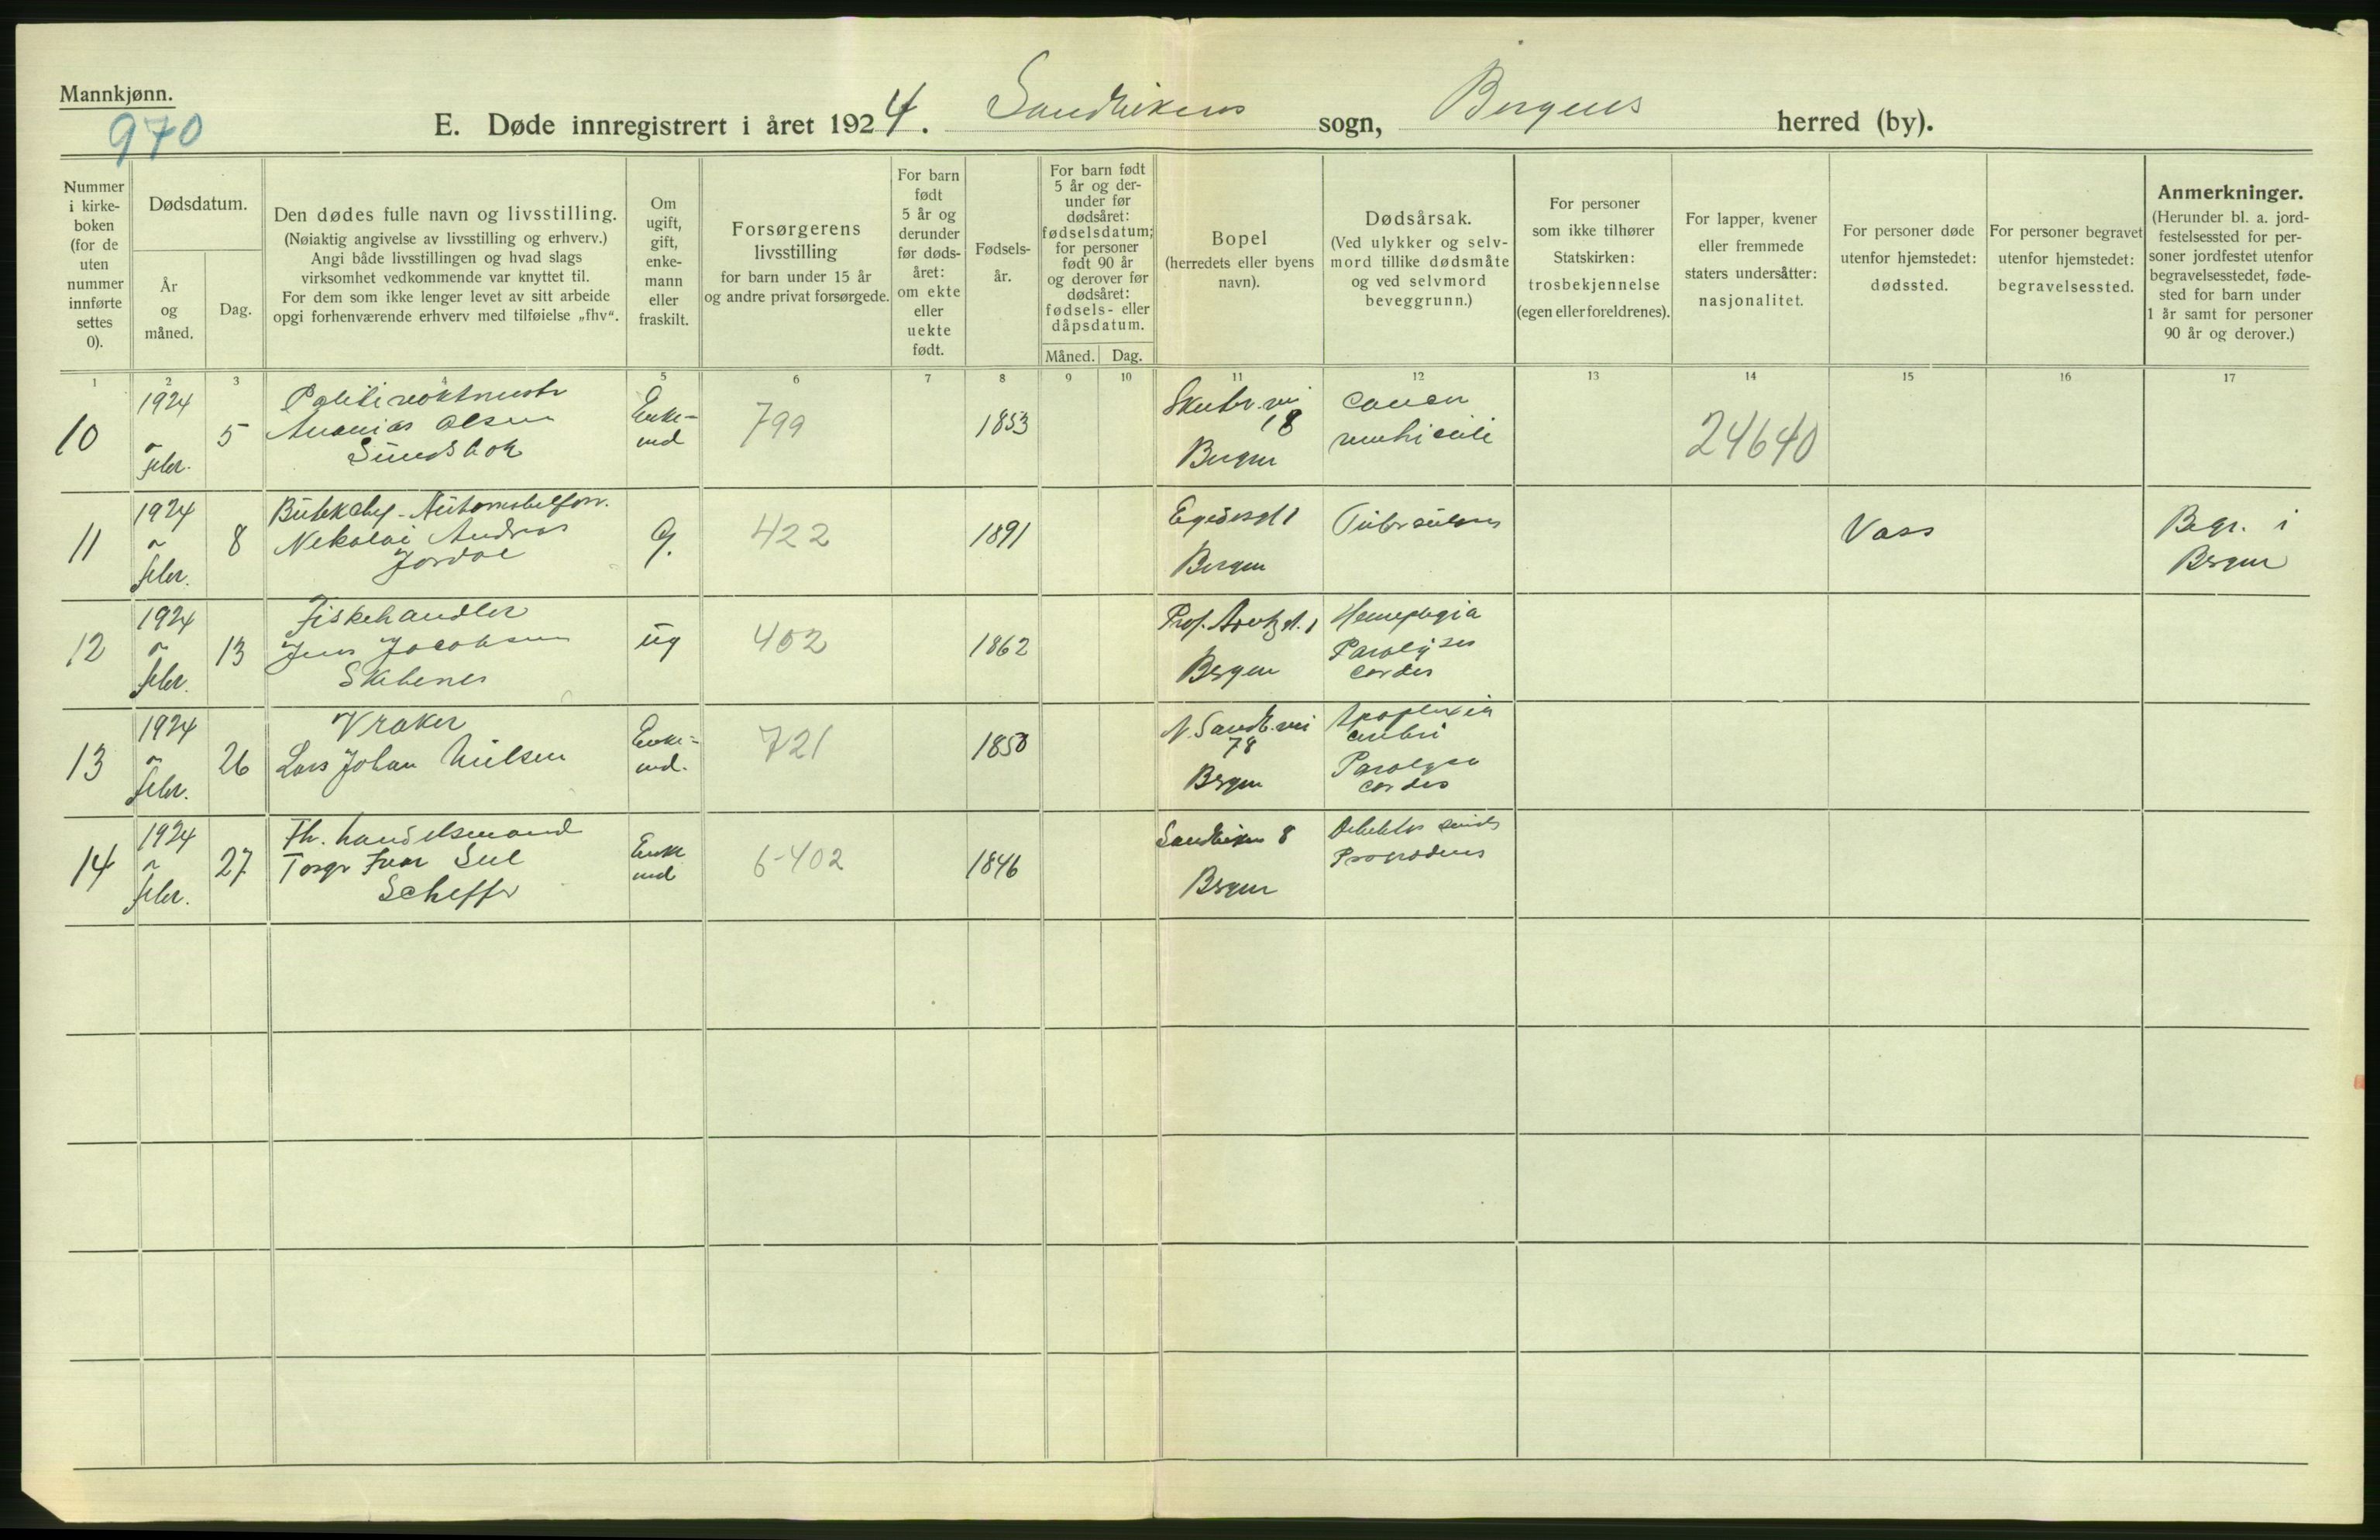 Mannkjønn.
970
E. Døde innregistrert i året 1924. Sandvikens sogn, Bergens herred (by).
Nummer i kirke-boken (for de uten nummer innførte settes 0).
Dødsdatum.
År og måned.
Dag.
Den dødes fulle navn og livsstilling.
(Nøiaktig angivelse av livsstilling og erhverv.)
Angi både livsstillingen og hvad slags
virksomhet vedkommende var knyttet til.
For dem som ikke lenger levet av sitt arbeide
opgi forhenværende erhverv med tilføielse „fhv“.
Om ugift, gift, enke-mann eller fraskilt.
Forsørgerens livsstilling
for barn under 15 år
og andre privat forsørgede.
For barn født 5 år og derunder før døds-året: om ekte eller uekte født.
Fødsels-år.
For barn født 5 år og der-under før dødsåret: fødselsdatum; for personer født 90 år og derover før dødsåret: fødsels- eller dåpsdatum.
Måned. Dag.
Bopel
(herredets eller byens navn).
Dødsårsak.
(Ved ulykker og selv-mord tillike dødsmåte og ved selvmord beveggrunn.)
For personer som ikke tilhører Statskirken: trosbekjennelse (egen eller foreldrenes).
For lapper, kvener eller fremmede staters undersåtter: nasjonalitet.
For personer døde utenfor hjemstedet: dødssted.
For personer begravet utenfor hjemstedet: begravelsessted.
Anmerkninger.
(Herunder bl. a. jord-festelsessted for per-soner jordfestet utenfor begravelsesstedet, føde-sted for barn under 1 år samt for personer 90 år og derover.)
1 2 3 4 5 6 7 8 9 10 11 12 13 14 15 16 17
10 1924 febr. 5
Ananias Olsen
Enke-md 799 1853
18
Bergen
Cancer ventriculi
24640
11 1924 febr. 8
Nikolai Andreas
Jordal
g. 422 1891
Bergen
Voss
Begr. i
Bergen
12 1924 febr. 13
Fiskehandler
Jens Jacobsen
ug 402 1862
Bergen
Hemiplegia
cordis
13 1924 febr. 26
Vraker
Lars Johan Nielsen
Enke-md. 721 1850
N. Sandv.vei
78
Bergen
Apoplexia
cerebri
cordis
14 1924 febr. 27
Fh. handelsmand
Scheffer
Enke md 6-402 1846
Sandviken 8
Bergen